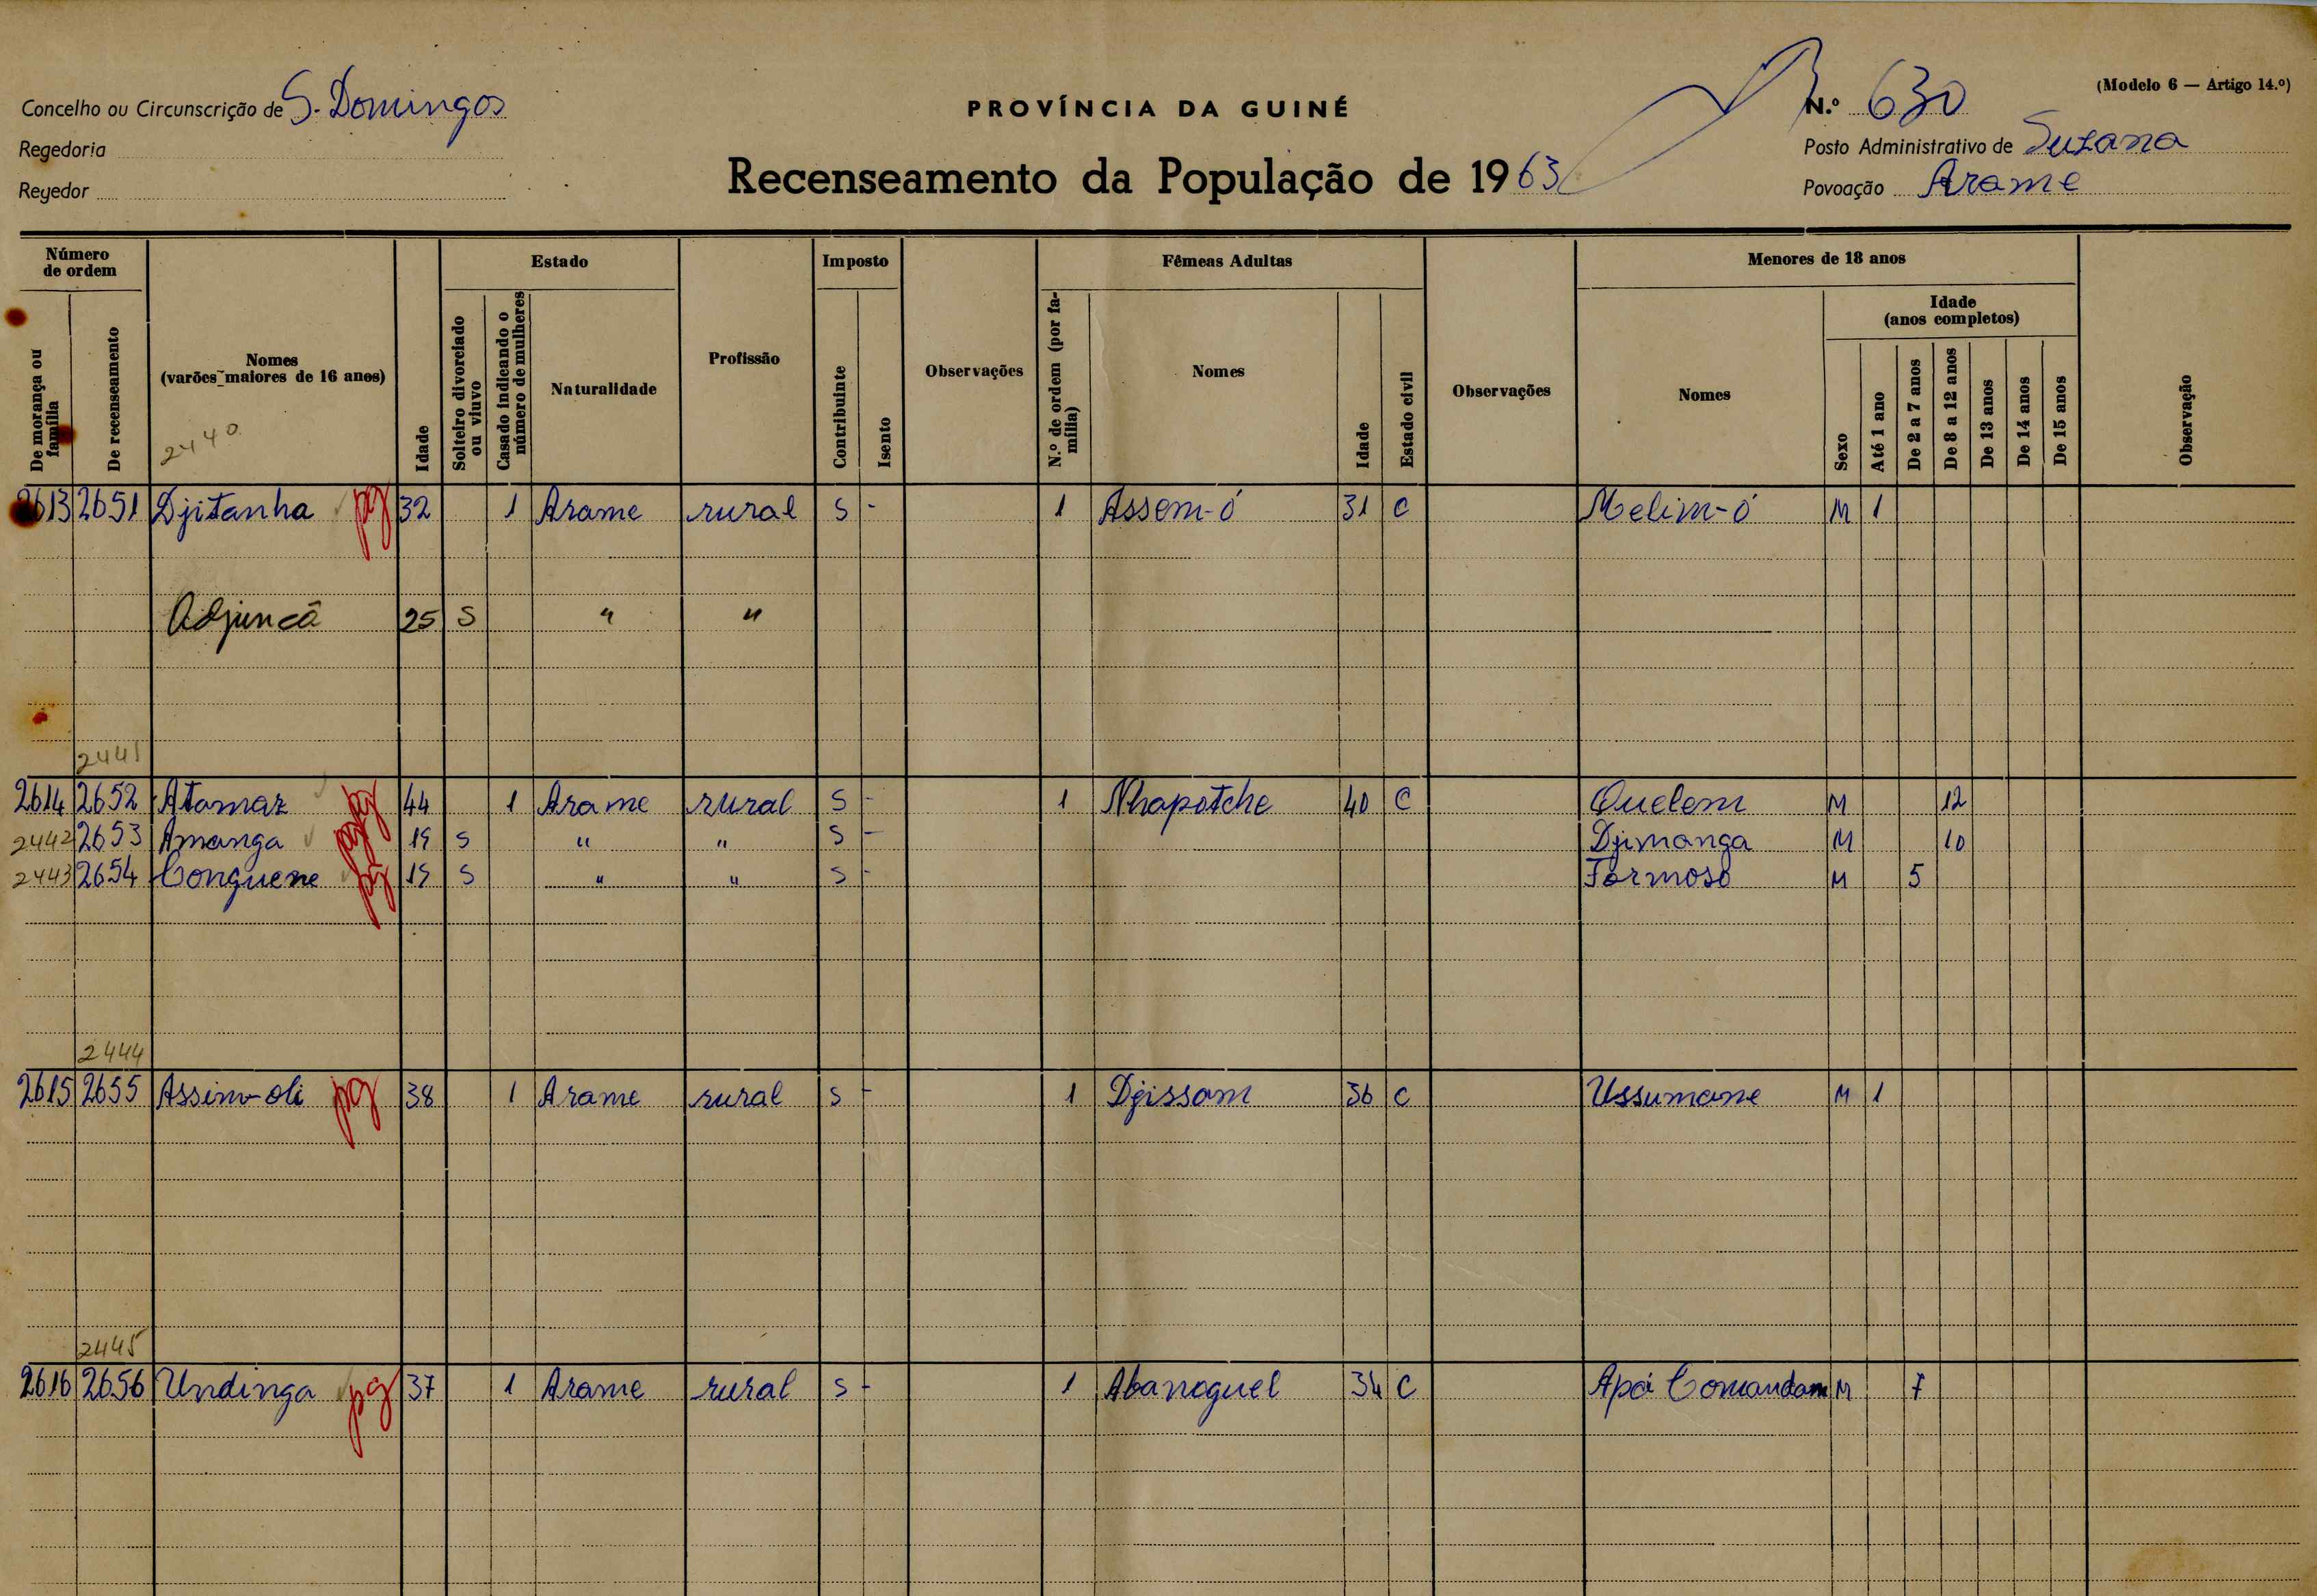 (Modelo 6 — Artigo 14.º)
Concelho ou Circunscrição de S. Domingos
PROVÍNCIA DA GUINÉ
N.º 630
Regedoria
Posto Administrativo de Suzana
Regedor
Recenseamento da População de 1963
Povoação Arame
Número de ordem
Estado
Imposto
Fêmeas Adultas
Menores de 18 anos
Idade
(anos completos)
De morança ou família
De recenseamento
Nomes
(varões maiores de 16 anos)
2440
Idade
Solteiro divorciado ou viuvo
Casado indicando o número de mulheres
Naturalidade
Profissão
Contribuinte
Isento
Observações
N.º de ordem (por família)
Nomes
Idade
Estado civil
Observações
Nomes
Sexo
Até 1 ano
De 2 a 7 anos
De 8 a 12 anos
De 13 anos
De 14 anos
De 15 anos
Observação
2613 2651 Djitanha pg 32 1 Arame rural S - 1 Assem-ó 31 C Melim-ó M 1
Adjuncã 25 S " "
2441
2614 2652 Atamaz pg 44 1 Arame rural S - 1 Nhapotche 40 C Quelem M 12
2442 2653 Amanga pg 19 S " " S - Djimanga M 10
2443 2654 Conguene pg 19 S " " S - Formoso M 5
2444
2615 2655 Assim-oli pg 38 1 Arame rural S - 1 Djissam 36 C Ussumane M 1
2445
2616 2656 Undinga pg 37 1 Arame rural S - 1 Abanoguel 34 C Apai Comandam M 7